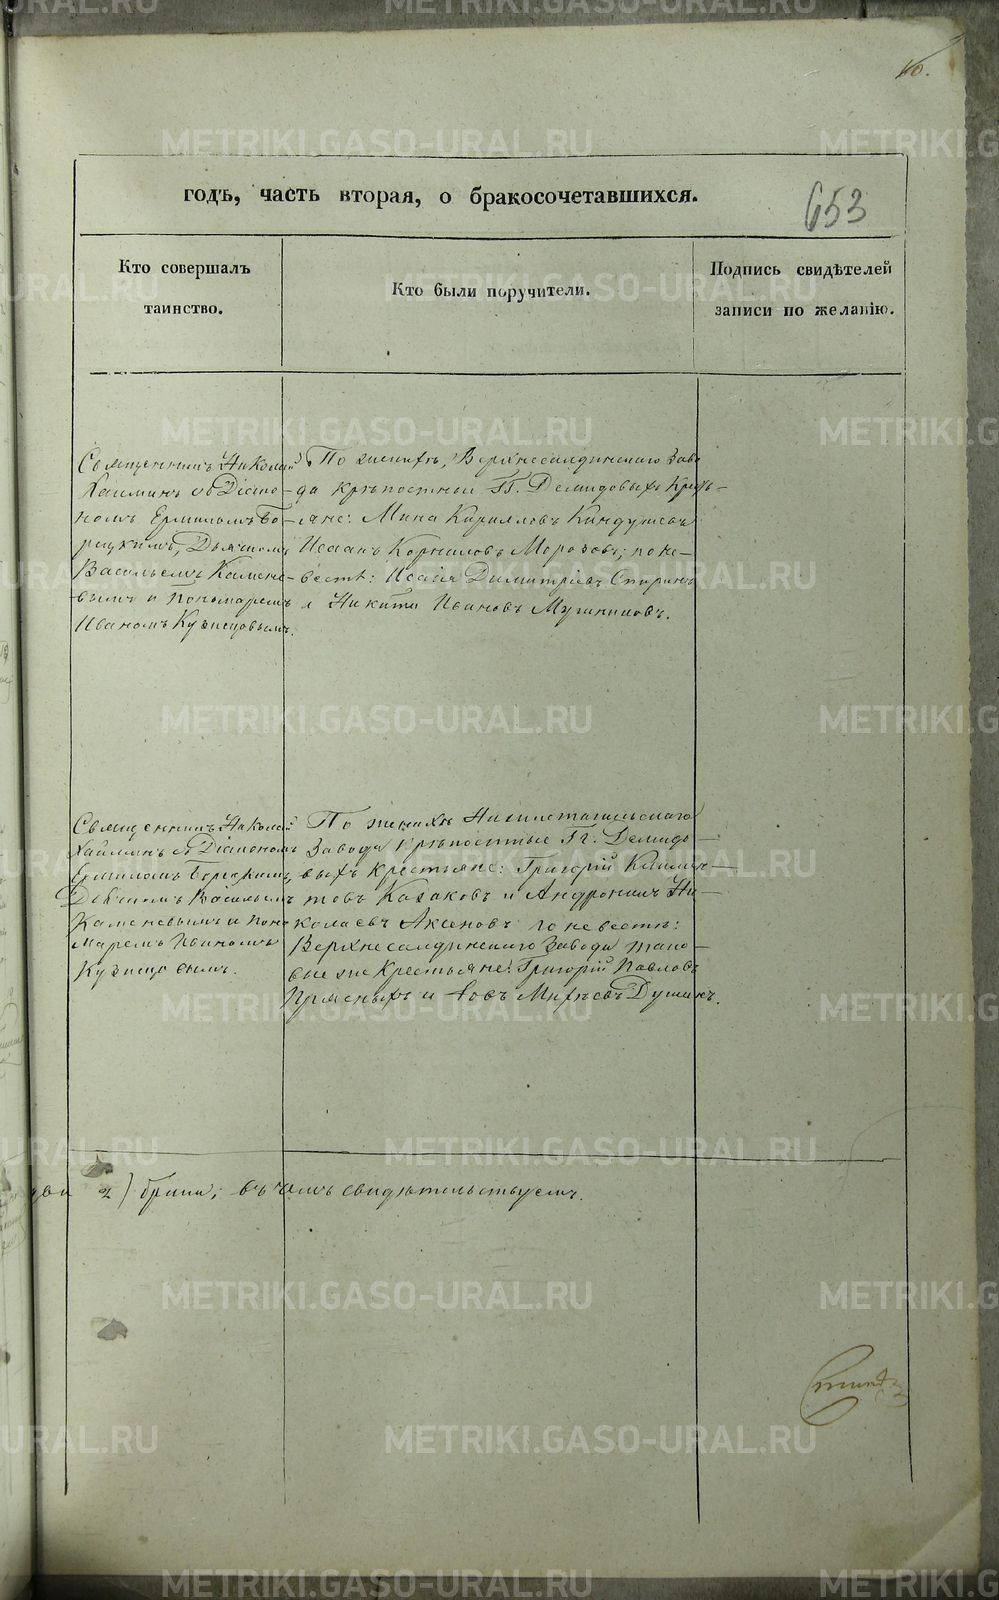 10.
годъ, часть вторая, о бракосочетавшихся.
653
Кто совершалъ
таинство.
Кто были поручители.
Подпись свидѣтелей
записи по желанію.
Священникъ Николай
Хаминъ съ Діако-
номъ Ермиломъ Бо-
рецкимъ, Дьячкомъ
Васильемъ Камене-
вымъ и Пономаремъ
Иваномъ Кузнецовымъ.
По женихѣ, Верхнесалдинскаго Заво
да крѣпостныи Гг. Демидовыхъ Кресть-
яне: Мина Кириловъ
Исаакъ Корниловъ Морозовъ; по не-
вестѣ: Исаія Димитріевъ
и Никита Ивановъ
Священникъ Николай
Хаминъ съ Діакономъ
Ермиломъ Борецкимъ,
Дьячкомъ Васильемъ
Каменевымъ и Поно
маремъ Иваномъ
Кузнецовымъ.
По женихѣ Нижнетагильскаго
Завода крѣпостные Гг. Демидо-
выхъ крестьяне: Григорій Климен-
товъ Казаковъ и Андроникъ Ни-
колаевъ Аксеновъ по невестѣ:
Верхнесалдинскаго Завода тако-
вые же Крестьяне: Григорій Павловъ
и Іовъ Михѣевъ
два 2) брака; въ чемъ свидѣтельствуемъ.
METRIKI.GASO-URAL.RU